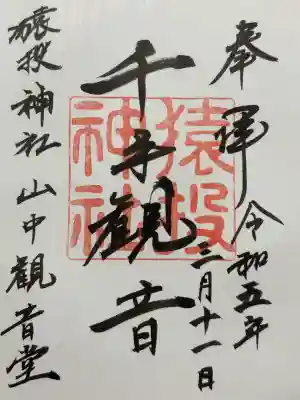 奉拝
令和五年
三月十一日
千手觀音
猿投神社
猿投神社山中觀音堂